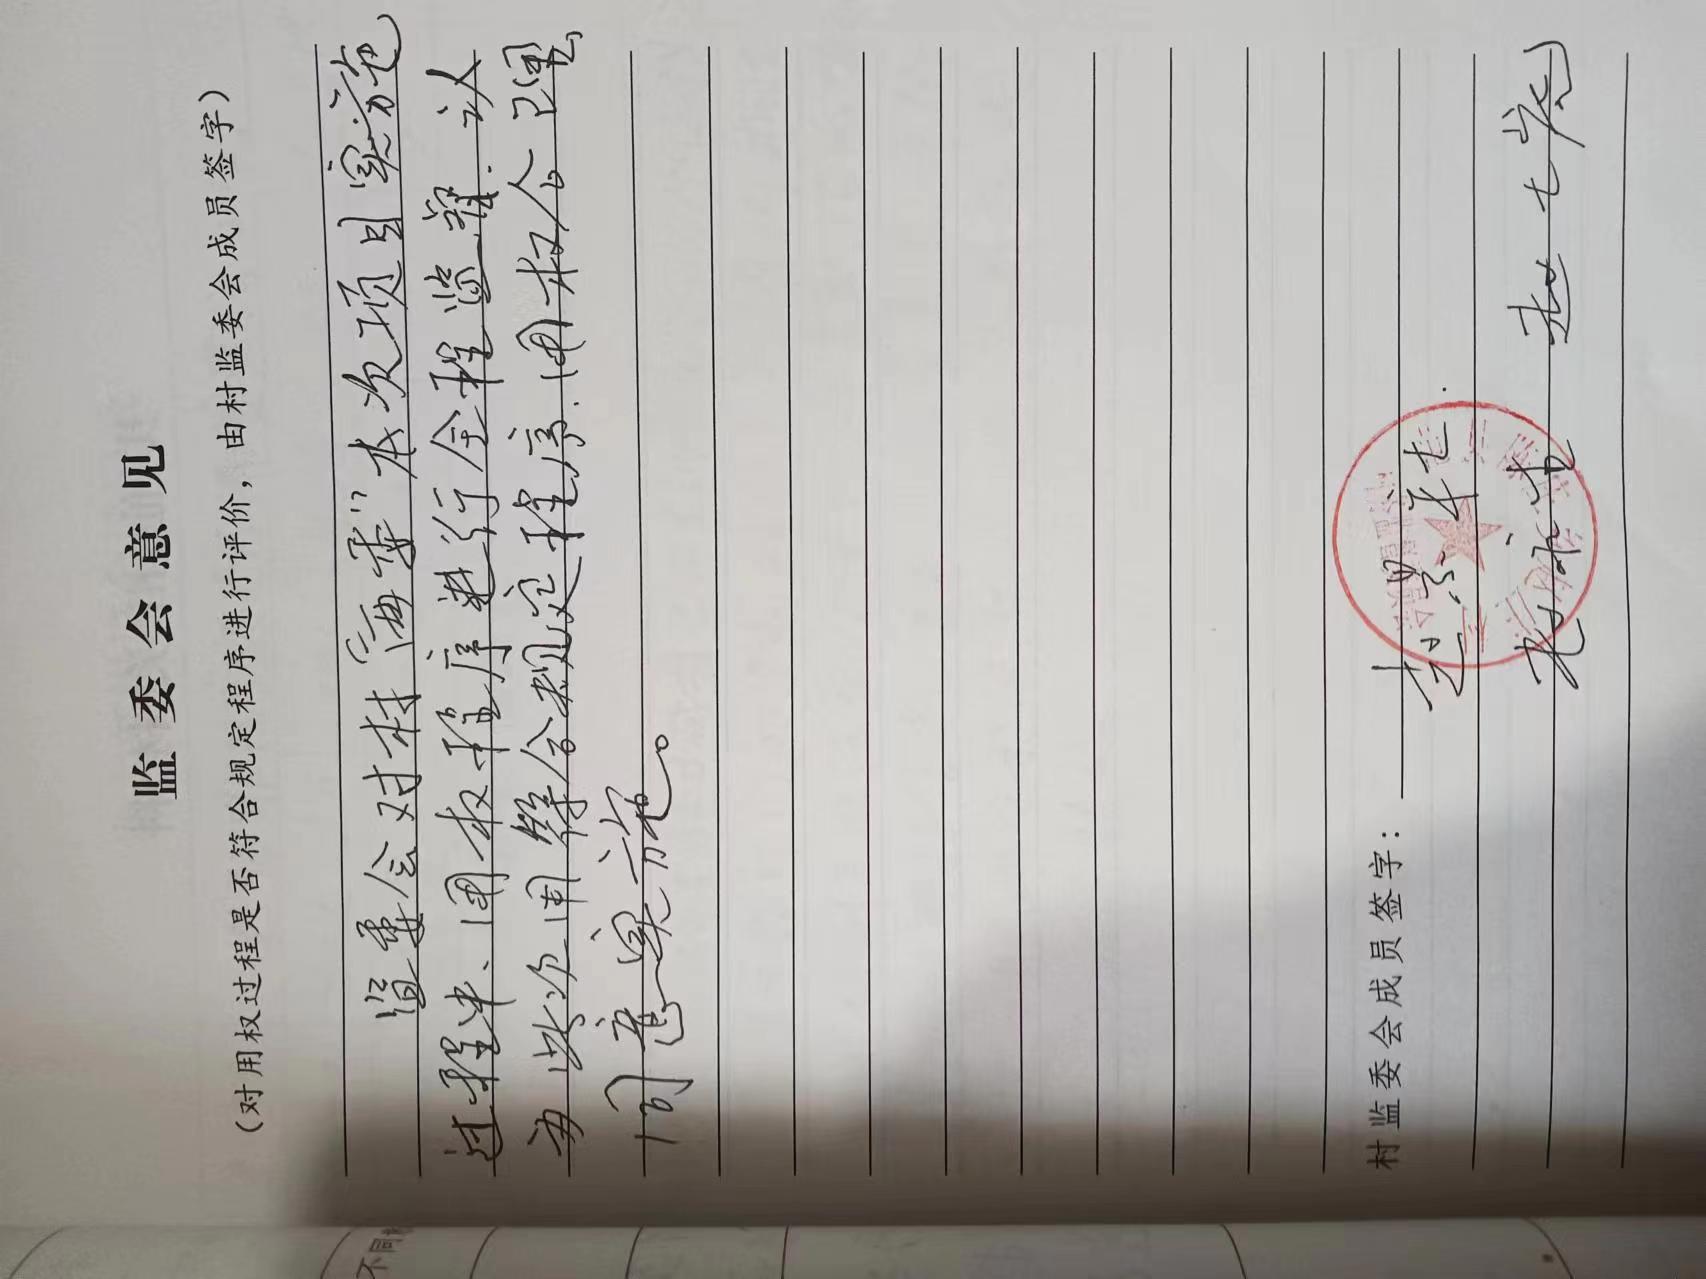 监委会意见
（对用权过程是否符合规定程序进行评价，由村监委会成员签字）
监委会对村“两委”本次项目实施
过程中、用权程序进行全程监督.认
为此次用符合规定程序.用权合理,
同意实施。
村监委会成员签字：
不同